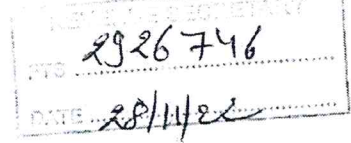 PTS 2926746
DATE 28/11/22